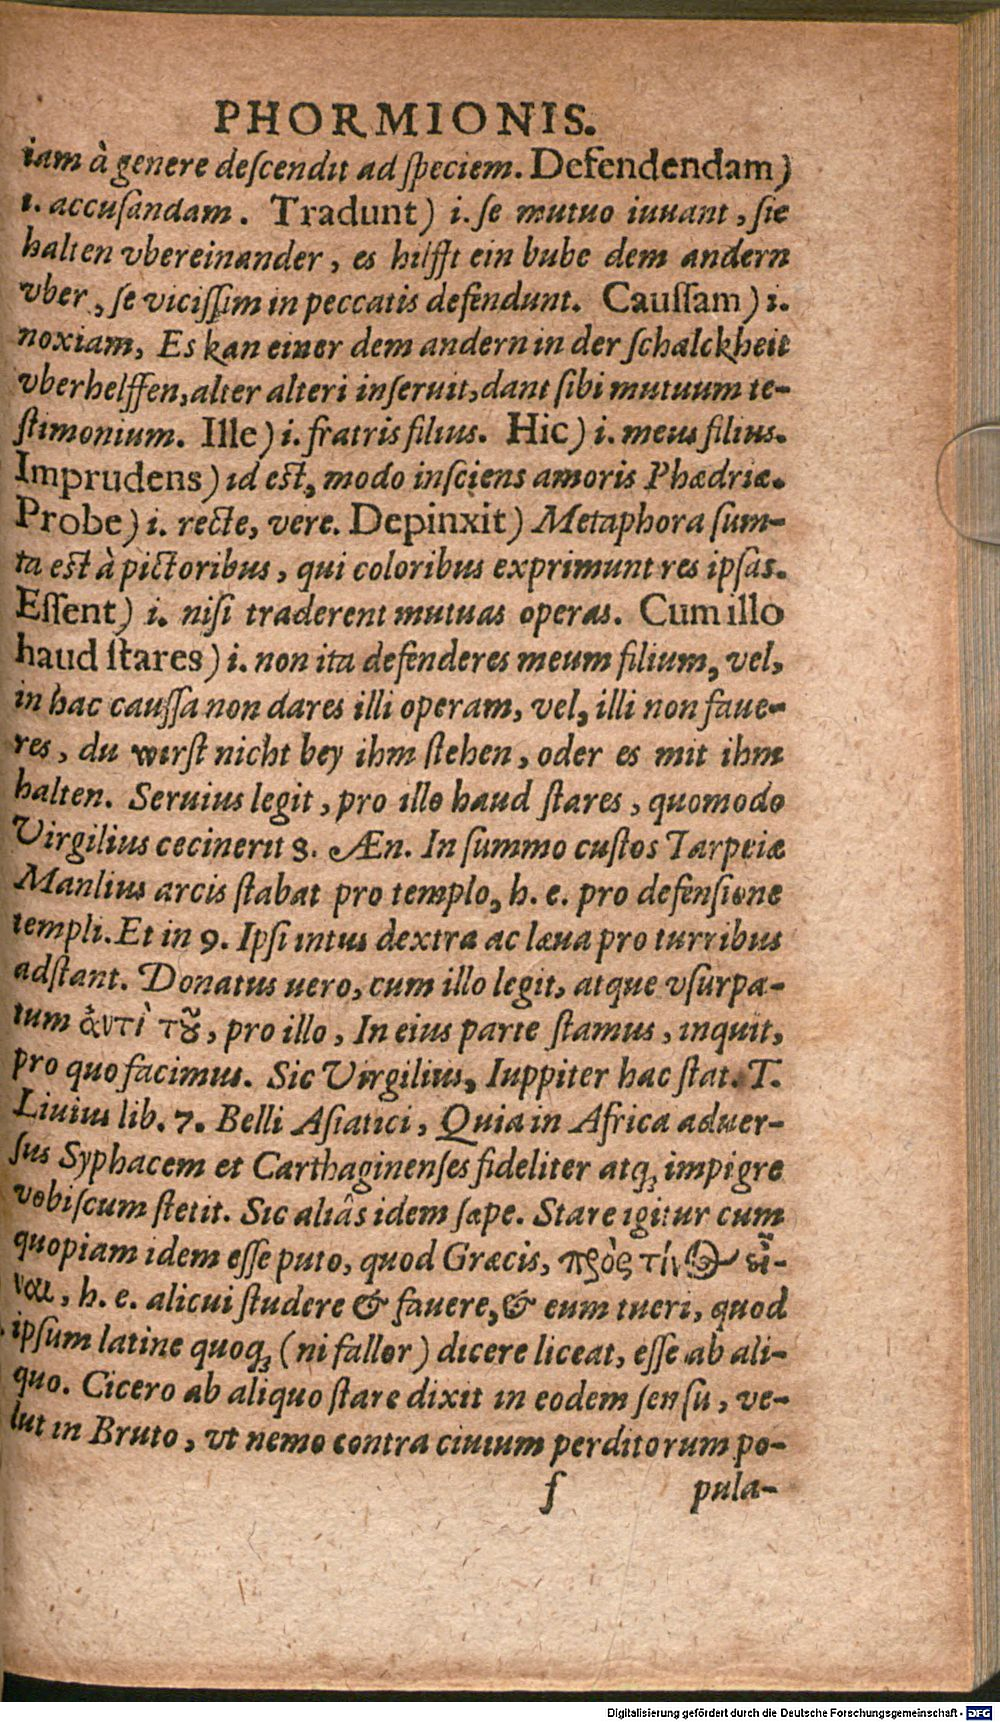 PHORMIONIS.
iam à genere deſcendit ad ſpeciem. Defendendam)
i. accuſandam. Tradunt) i. ſe mutuo iuuant, ſie
halten vbereinander, es hilfft ein bube dem andern
vber, ſe viciſſim in peccatis defendunt. Cauſſam) i.
noxiam, Es kan einer dem andern in der ſchalckheit
vberhelffen, alter alteri inſeruit, dant ſibi mutuum te-
ſtimonium. Ille) i. fratris filius. Hic) i. meus filius.
Imprudens) id eſt, modo inſciens amoris Phædriæ.
Probe) i. recte, vere. Depinxit) Metaphora ſum-
ta eſt à pictoribus, qui coloribus exprimunt res ipſas.
Eſſent) i. niſi traderent mutuas operas. Cum illo
haud ſtares) i. non ita defenderes meum filium, vel,
in hac cauſſa non dares illi operam, vel, illi non faue-
res, du wirſt nicht bey ihm ſtehen, oder es mit ihm
halten. Seruius legit, pro illo haud ſtares, quomodo
Virgilius cecinerit 8. Æn. In ſummo cuſtos Tarpeiæ
Manlius arcis ſtabat pro templo, h. e. pro defenſione
templi. Et in 9. Ipſi intus dextra ac læua pro turribus
adſtant. Donatus uero, cum illo legit, atque vſurpa-
tum ἀντὶ τȣ̃, pro illo, In eius parte ſtamus, inquit,
pro quo facimus. Sic Virgilius, Iuppiter hac ſtat. T.
Liuius lib. 7. Belli Aſiatici, Quia in Africa aduer-
ſus Syphacem et Carthaginenſes fideliter atq; impigre
vobiſcum ſtetit. Sic aliâs idem ſæpe. Stare igitur cum
quopiam idem eſſe puto, quod Græcis, πρὸς τίνος εἶ-
ναι, h. e. alicui ſtudere & fauere, & eum tueri, quod
ipſum latine quoq; (ni fallor) dicere liceat, eſſe ab ali-
quo. Cicero ab aliquo ſtare dixit in eodem ſenſu, ve-
lut in Bruto, vt nemo contra ciuium perditorum po-
ſ pula-
Digitalisierung gefördert durch die Deutsche Forschungsgemeinschaft - DFG